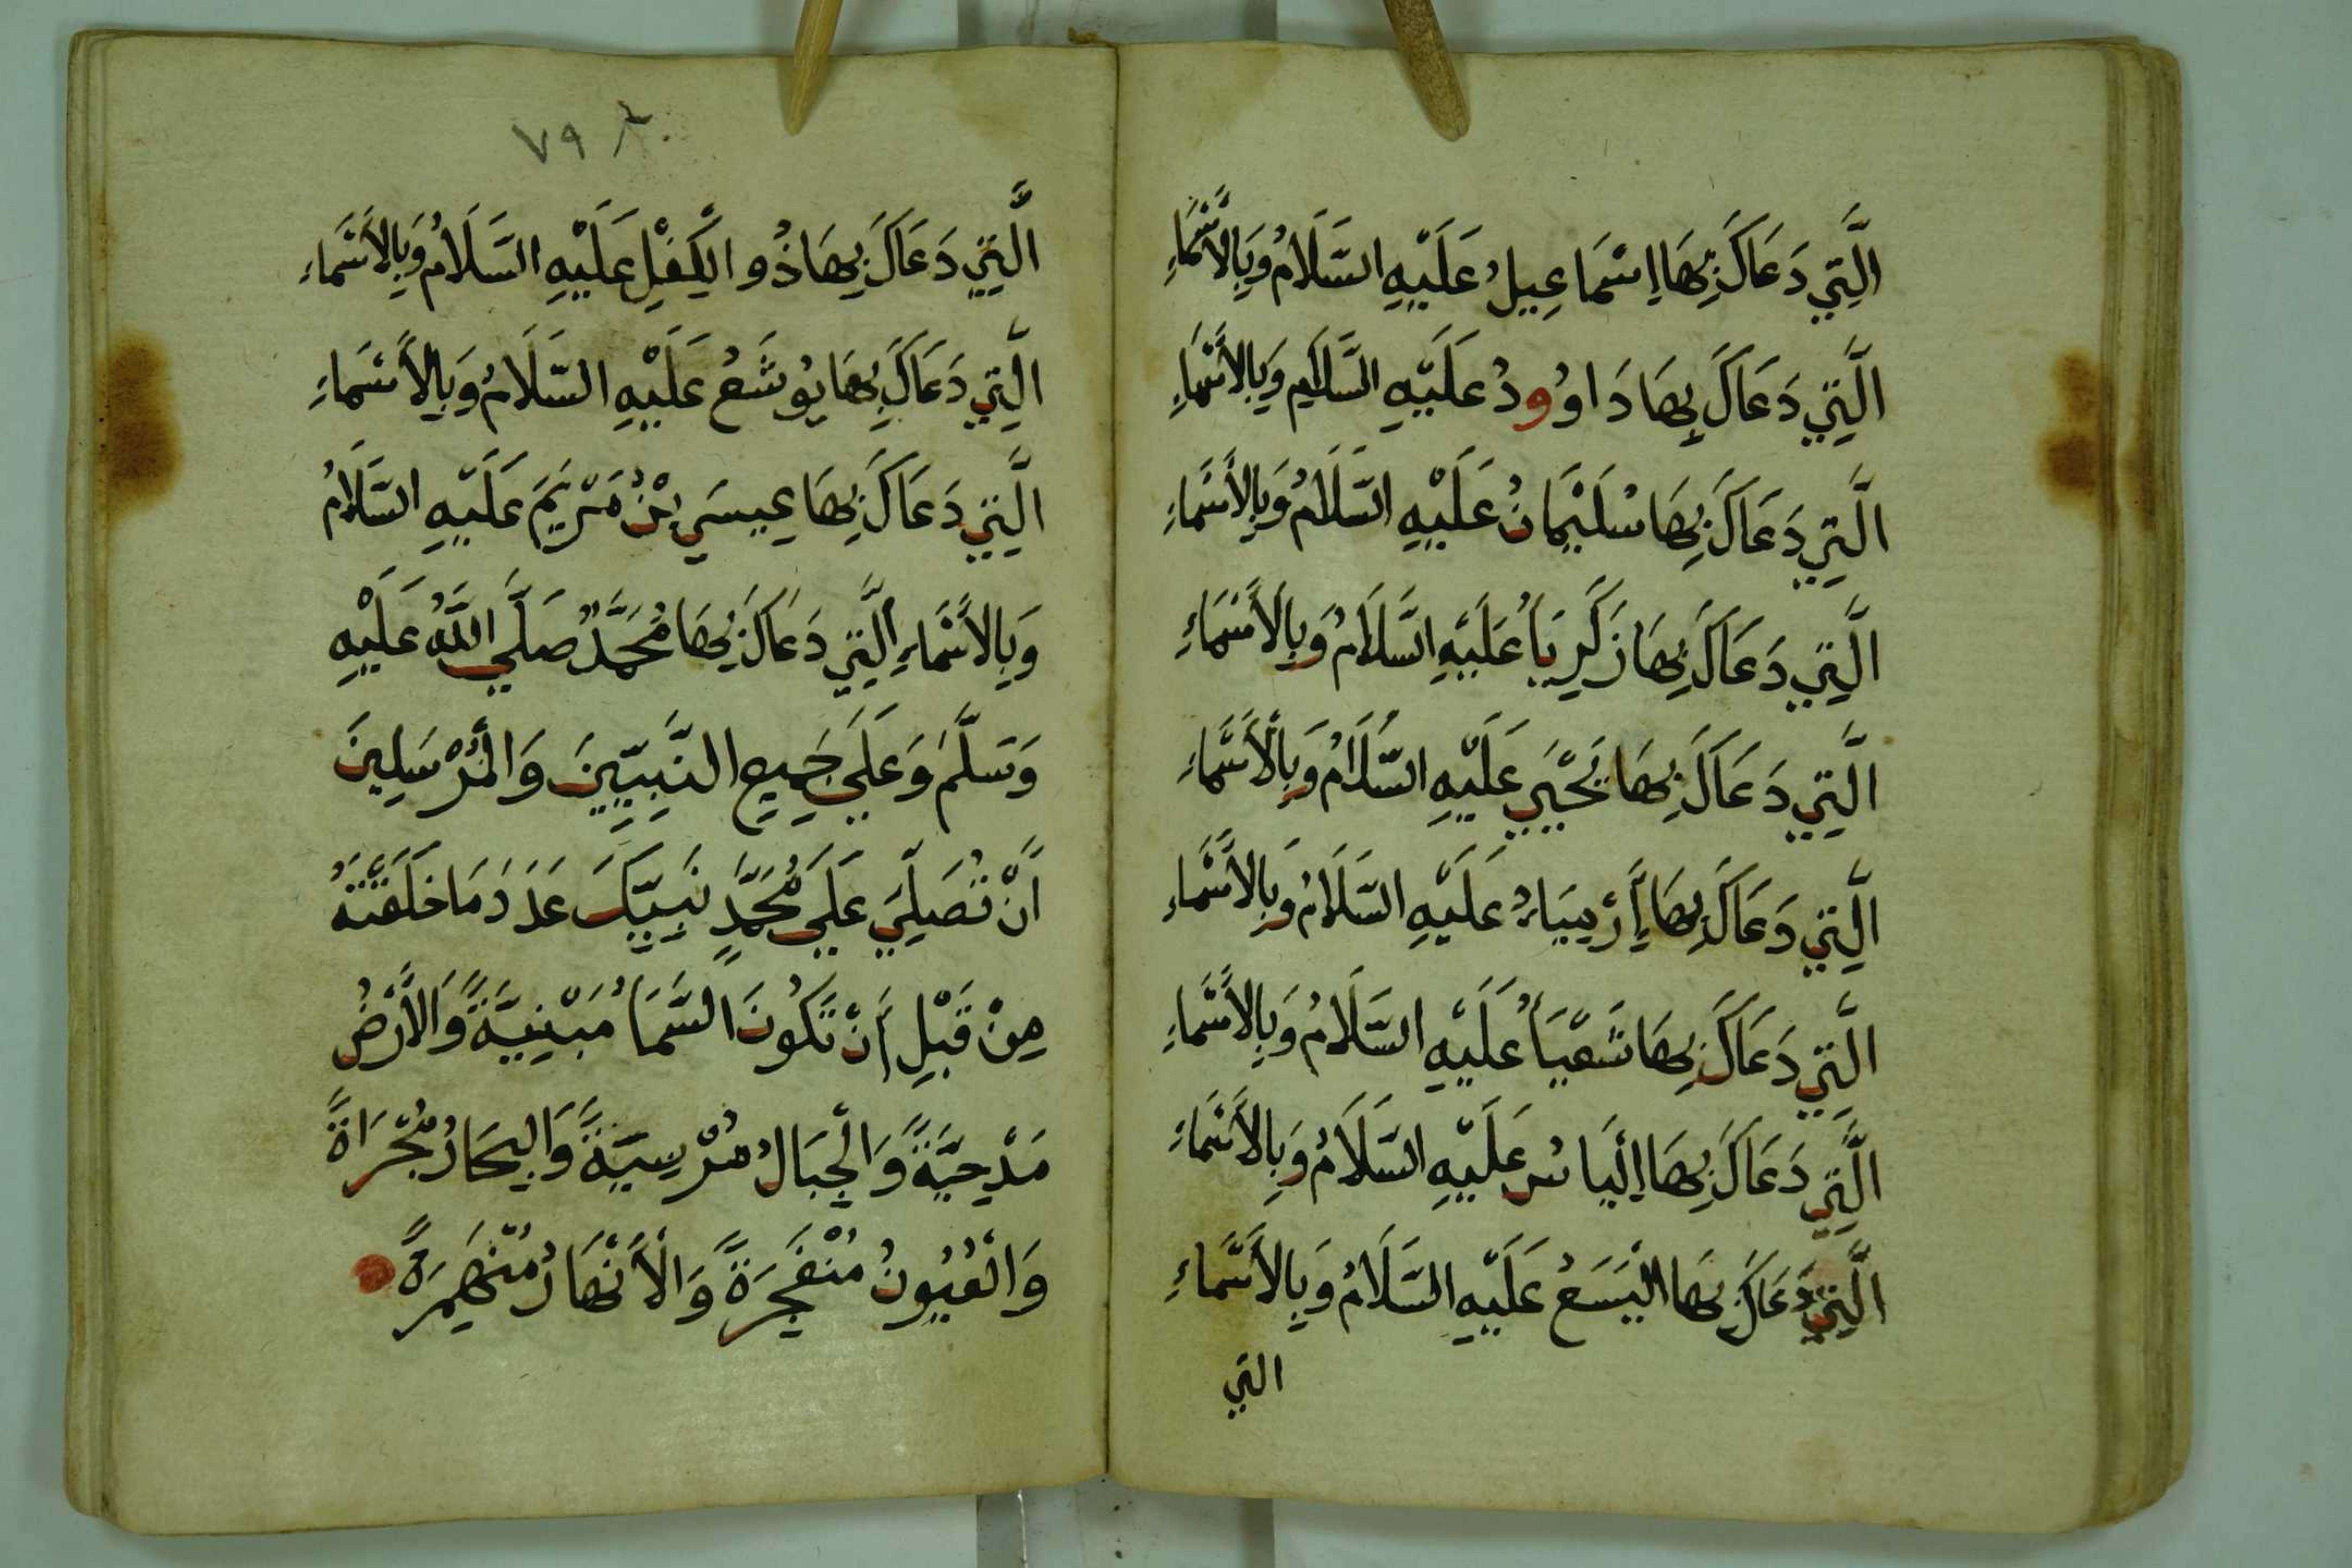 الَّتِي دَعَاكَ بِهَا إِسْمَاعِيلُ عَلَيْهِ السَّلَامُ وَبِالأَسْمَاءِ
الَّتِي دَعَاكَ بِهَا دَاوُودُ عَلَيْهِ السَّلَامِ وَبِالأَسْمَاءِ
الَّتِي دَعَاكَ بِهَا سُلَيْمَانُ عَلَيْهِ السَّلَامُ وَبِالأَسْمَاءِ
الَّتِي دَعَاكَ بِهَا زَكَرِيَاُ عَلَيْهِ السَّلَامُ وَبِالأَسْمَاءِ
الَّتِي دَعَاكَ بِهَا يَحْيَي عَلَيْهِ السَّلَامُ وَبِالأَسْمَاءِ
الَّتِي دَعَاكَ بِهَا أَرْمِيَاءُ عَلَيْهِ السَّلَامُ وَبِالأَسْمَاءِ
الَّتِي دَعَاكَ بِهَا شَعْيَاُ عَلَيْهِ السَّلَامُ وَبِالأَسْمَاءِ
الَّتِي دَعَاكَ بِهَا إِلْيَاسُ عَلَيْهِ السَّلَامُ وَبِالأَسْمَاءِ
الَّتِي دَعَاكَ بِهَا الْيَسَعُ عَلَيْهِ السَّلَامُ وَبِالأَسْمَاءِ
التي
٧٩
الَّتِي دَعَاكَ بِهَا ذُو الْكِفْلِ عَلَيْهِ السَّلَامُ وَبِالأَسْمَاءِ
الَّتِي دَعَاكَ بِهَا يُوشَعُ عَلَيْهِ السَّلَامُ وَبِالأَسْمَاءِ
الَّتِي دَعَاكَ بِهَا عِيسَي بْنُ مَرْيَمَ عَلَيْهِ السَّلَامُ
وَبِالأَسْمَاءِ الَّتِي دَعَاكَ بِهَا مُحَمَّدٌ صَلَّي اللَّهُ عَلَيْهِ
وَسَلَّمَ وَعَلَي جَمِيعِ النَّبِيِّينَ وَالْمُرْسَلِينَ
أَنْ تُصَلِّيَ عَلَي مُحَمَّدٍ نَبِيِّكَ عَدَدَ مَا خَلَقْتَهُ
مِنْ قَبْلِ أَنْ تَكُونَ السَّمَاُ مَبْنِيَّةً وَالأَرْضُ
مَدْحِيَّةً وَالْجِبَالُ مُرْسِيَّةً وَالْبِحَارُ مُجْرَاةً
وَالْعُيُونُ مُنْفَجِرَةً وَالْأَنْهَارُ مُنْهَمِرَةً